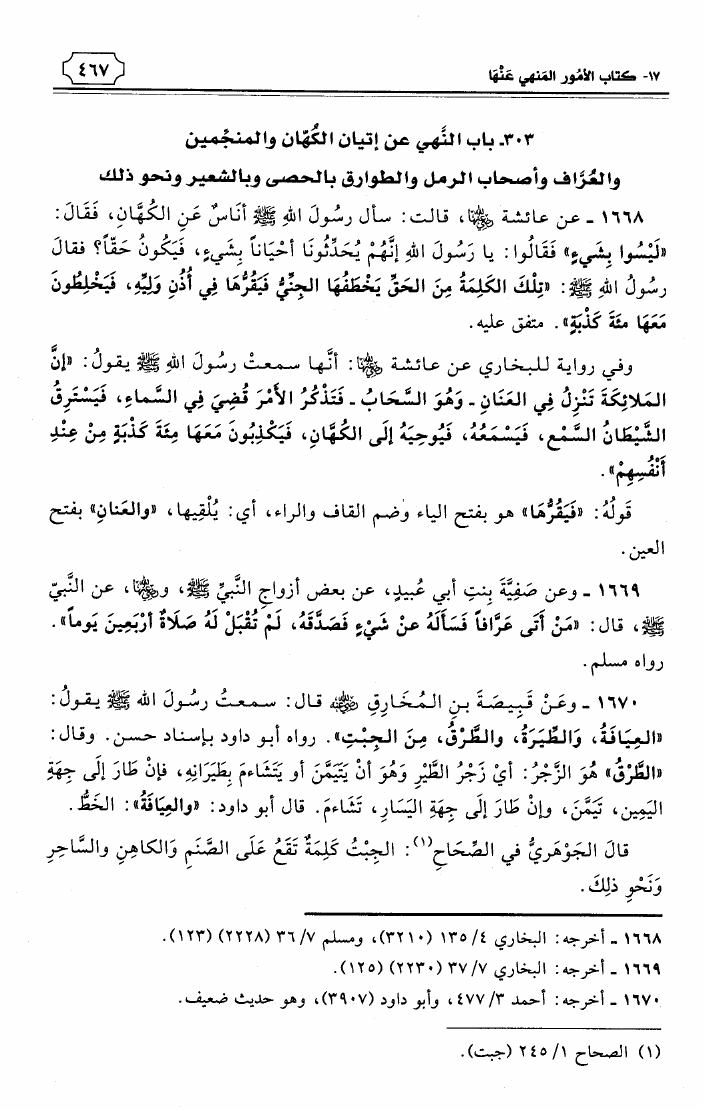 ١٧- كتاب الأمُور المَنهي عَنْهَا
٤٦٧
٣٠٣ـ باب النَّهي عن إتيان الكُهّان والمنجّمين
والعُرَّاف وأصحاب الرمل والطوارق بالحصى وبالشعير ونحو ذلك
١٦٦٨ ـ عن عائشة رضي الله عنها، قالت: سأل رسُولَ اللهِ ﷺ أنَاسٌ عَنِ الكُهَّانِ، فَقَالَ:
«لَيْسُوا بِشَيءٍ» فَقَالُوا: يا رَسُولَ اللهِ إنَّهُمْ يُحَدِّثُونَا أحْيَاناً بِشَيءٍ، فَيَكُونُ حَقّاً؟ فقالَ
رسُولُ اللهِ ﷺ: «تِلْكَ الكَلِمَةُ مِنَ الحَقِّ يَخْطَفُهَا الجِنِّيُّ فَيَقُرُّهَا فِي أُذُنِ وَلِيِّهِ، فَيَخْلِطُونَ
مَعَهَا مئَةَ كَذْبَةٍ». متفق عليه.
وفي رواية للبخاري عن عائشة رضي الله عنها: أنَّها سمعتْ رسُولَ الله ﷺ يقولُ: «إنَّ
المَلائِكَةَ تَنْزِلُ فِي العَنَانِ ـ وَهُوَ السَّحَابُ ـ فَتَذْكُرُ الأَمْرَ قُضِيَ فِي السَّماءِ، فَيَسْتَرِقُ
الشَّيْطَانُ السَّمْعَ، فَيَسْمَعُهُ، فَيُوحِيَهُ إلَى الكُهَّانِ، فَيَكْذِبُونَ مَعَهَا مِئَةَ كَذْبَةٍ مِنْ عِنْدِ
أنْفُسِهِمْ».
قَولُهُ: «فَيَقُرُّهَا» هو بفتح الياء وضم القاف والراء، أي: يُلْقِيها، «والعَنانِ» بفتح
العين.
١٦٦٩ ـ وعن صَفِيَّةَ بِنتِ أبي عُبيدٍ، عن بعض أزواجِ النَّبيِّ ﷺ، ورضي الله عنها، عن النَّبيّ
ﷺ، قال: «مَنْ أتَى عَرَّافاً فَسَألَهُ عنْ شَيْءٍ فَصَدَّقَهُ، لَمْ تُقْبَلْ لَهُ صَلَاةٌ أرْبَعِينَ يَوماً».
رواه مسلم.
١٦٧٠ ـ وعَنْ قَبِيصَةَ بنِ المُخَارِقِ رضي الله عنه قال: سمعتُ رسُولَ الله ﷺ يقولُ:
«العِيَافَةُ، وَالطِّيَرَةُ، والطَّرْقُ، مِنَ الجِبْتِ». رواه أبو داود بإسناد حسن. وقال:
«الطَّرْقُ» هُوَ الزَّجْرُ: أيْ زَجْرُ الطَّيْرِ وَهُوَ أنْ يَتَيَمَّنَ أو يَتَشَاءمَ بِطَيَرَانِهِ، فإنْ طَارَ إلَى جِهَةِ
اليَمِين، تَيَمَّنَ، وإنْ طَارَ إلَى جِهَةِ اليَسَارِ، تَشَاءَمَ. قال أبو داود: «والعِيَافَةُ»: الخطُّ.
قالَ الجَوْهَريُّ في الصِّحَاحِ(١): الجِبْتُ كَلِمَةٌ تَقَعُ عَلَى الصَّنَمِ وَالكاهِنِ والسَّاحِرِ
وَنَحْوِ ذلِكَ.
١٦٦٨ ـ أخرجه: البخاري ٤/ ١٣٥ (٣٢١٠)، ومسلم ٧/ ٣٦ (٢٢٢٨) (١٢٣).
١٦٦٩ ـ أخرجه: البخاري ٧/ ٣٧ (٢٢٣٠) (١٢٥).
١٦٧٠ ـ أخرجه: أحمد ٣/ ٤٧٧، وأبو داود (٣٩٠٧)، وهو حديث ضعيف.
(١) الصحاح ١/ ٢٤٥ (جبت).